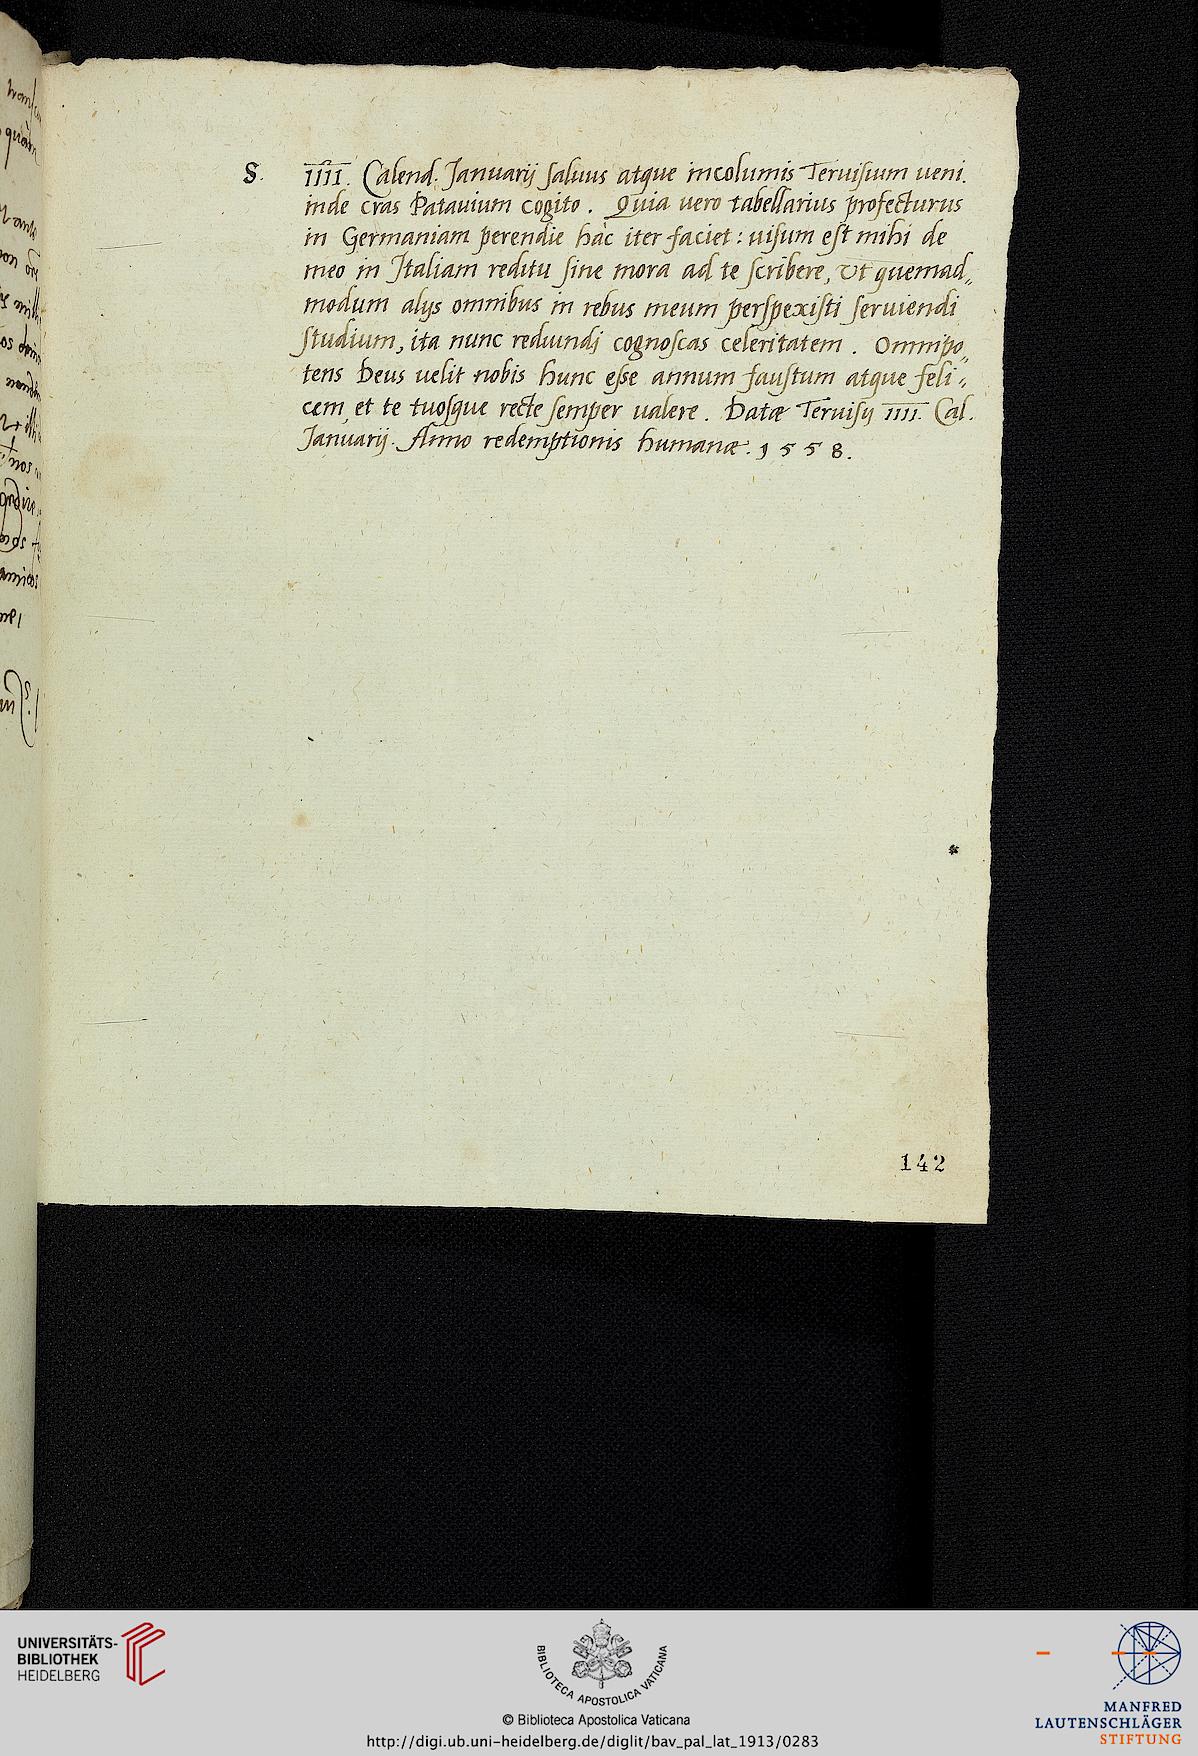 S. IIII. Calend. Januarij saluus atque incolumis Teruisium ueni.
inde cras Patauium cogito. Quia uero tabellarius profecturus
in Germaniam perendie hàc iter faciet: uisum est mihi de
meo in Italiam reditu sine mora ad te scribere, Vt quemad„
modum alijs omnibus in rebus meum perspexisti seruiendi
studium, ita nunc redeundi cognoscas celeritatem. Omnipo„
tens Deus uelit nobis hunc esse annum faustum atque feli„
cem, et te tuosque recte semper ualere. Datæ Teruisij IIII. Cal.
Januarij. Anno redemptionis humanæ. 1558.
142
UNIVERSITÄTS-
BIBLIOTHEK
HEIDELBERG
BIBLIOTECA APOSTOLICA VATICANA
© Biblioteca Apostolica Vaticana
http://digi.ub.uni-heidelberg.de/diglit/bav_pal_lat_1913/0283
MANFRED
LAUTENSCHLÄGER
STIFTUNG